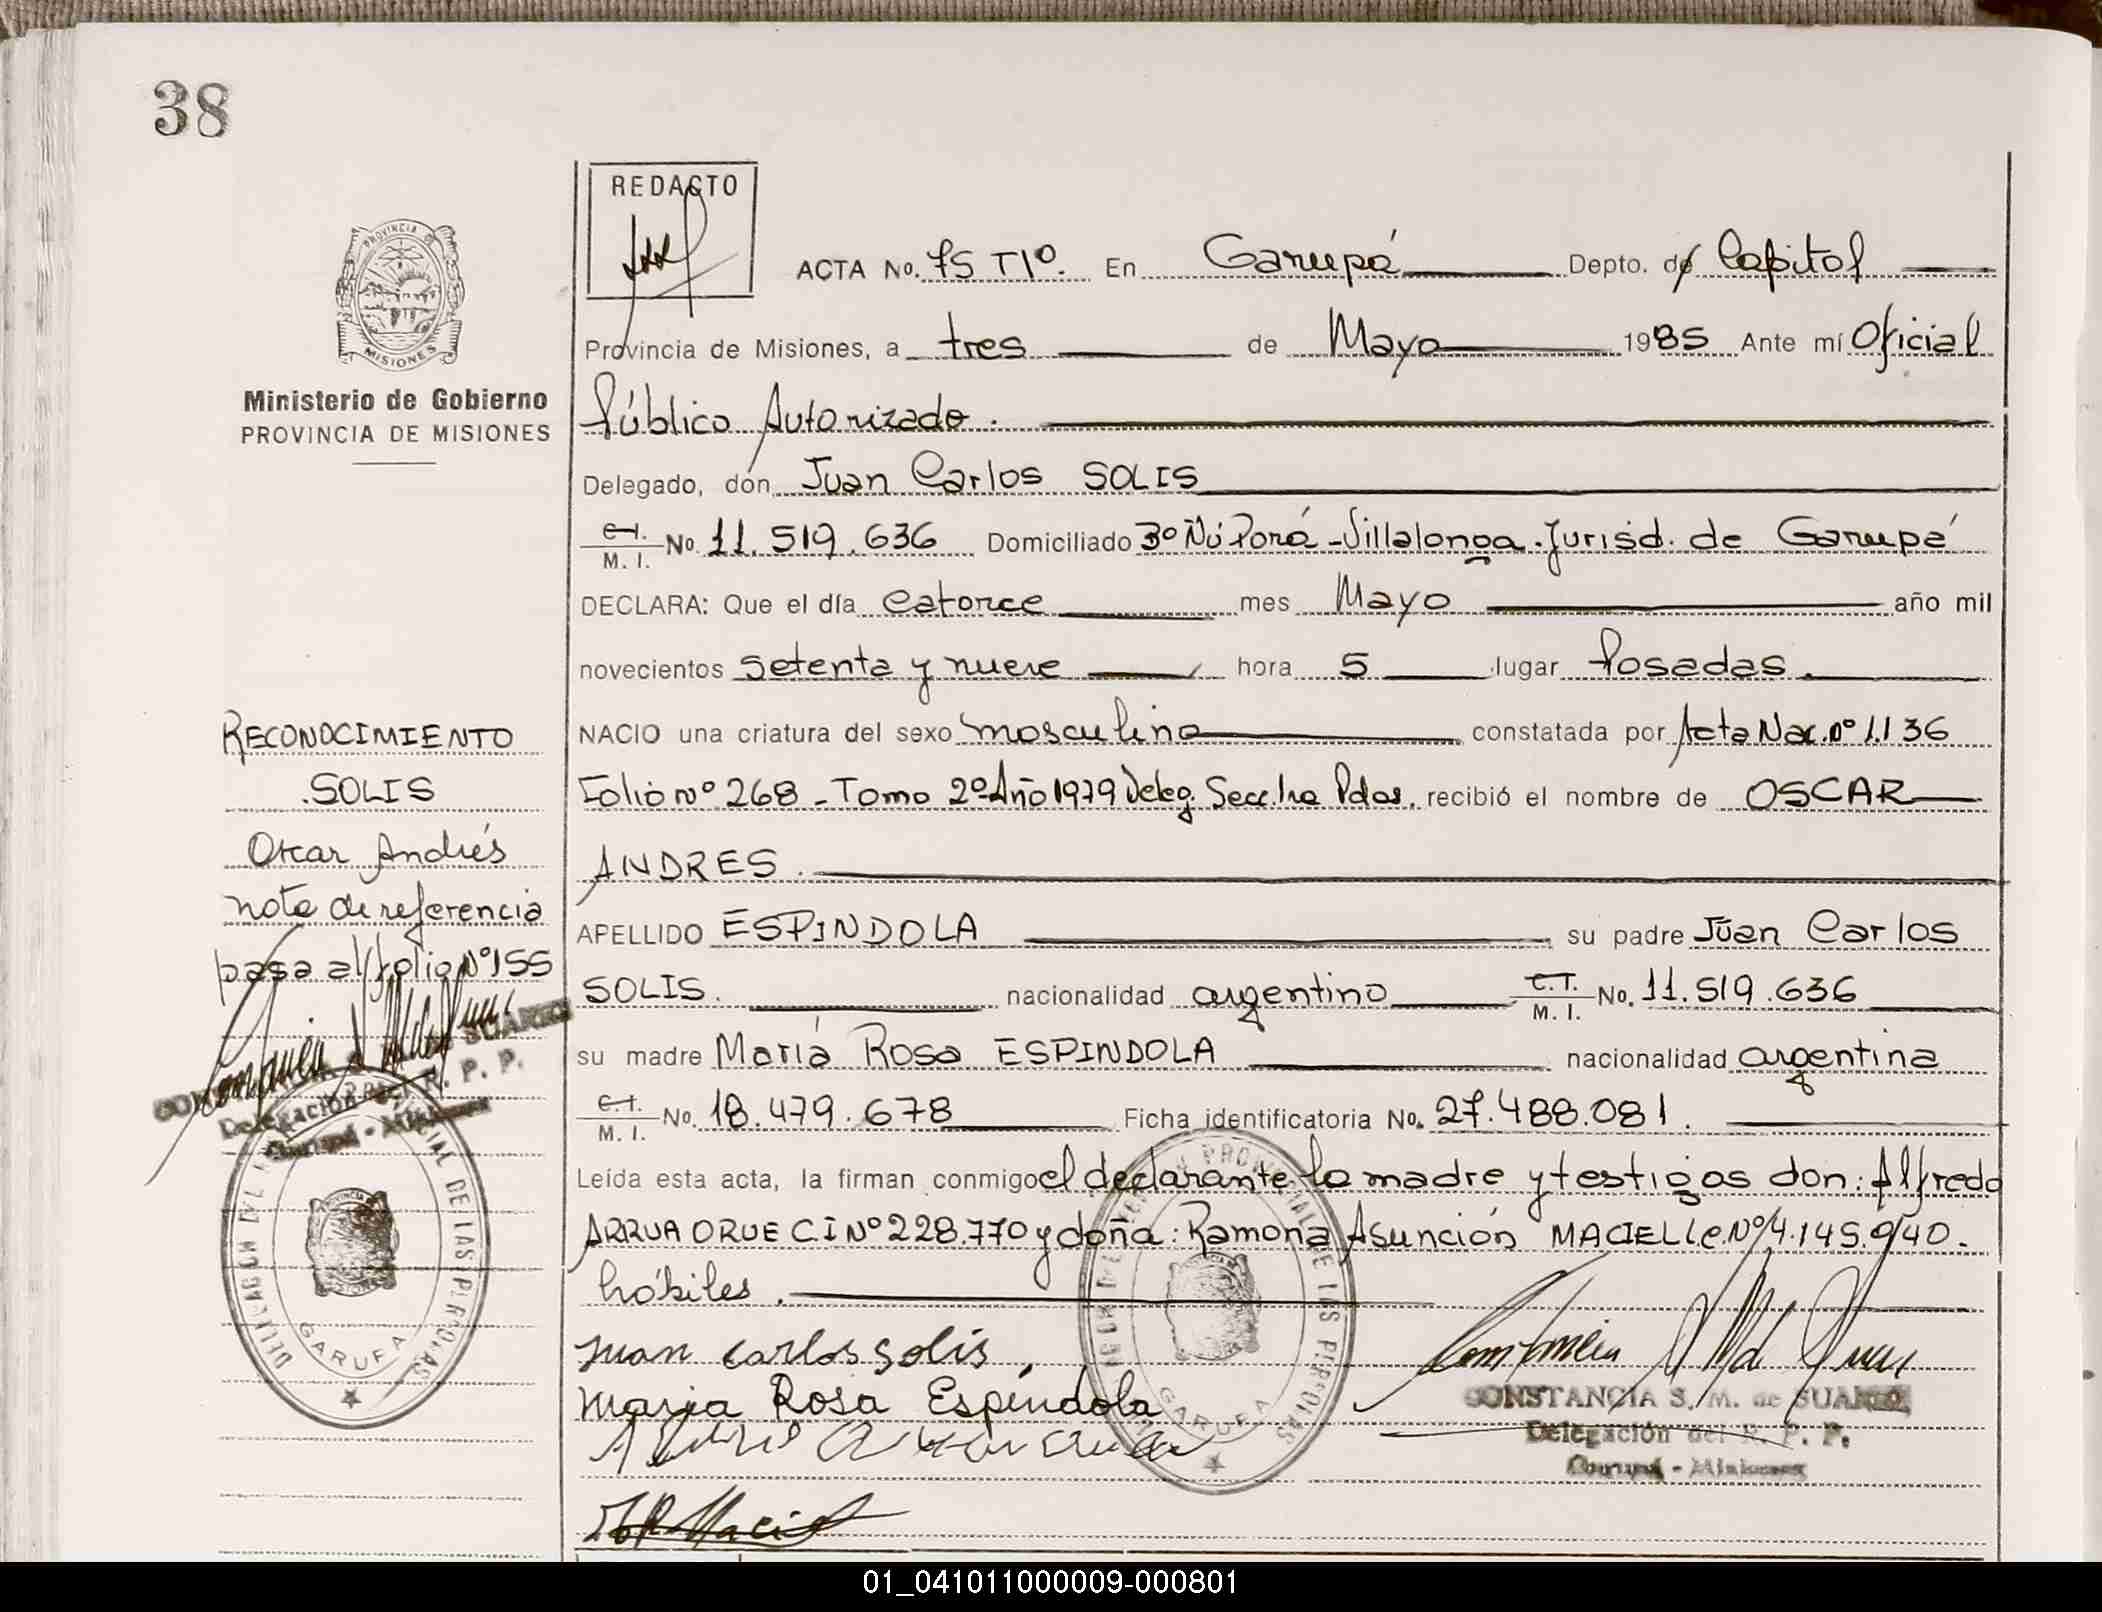 38
REDACTO
ACTA No. 75 T1º. En Garupá Depto. de Capital
Provincia de Misiones, a tres de Mayo 1985 Ante mí Oficial
Ministerio de Gobierno
PROVINCIA DE MISIONES
Público Autorizado.
Delegado, don Juan Carlos SOLIS
C.I. M. I. No. 11.519.636 Domiciliado 3º Ñú Porá - Villalonga. Jurisd. de Garupá
DECLARA: Que el día catorce mes Mayo año mil
novecientos setenta y nueve hora 5 lugar Posadas.
NACIO una criatura del sexo masculino constatada por Acta Nac. nº 1.136
Folio nº 268 - Tomo 2º Año 1979 Deleg. Secc. 1ra Pdas. recibió el nombre de OSCAR
ANDRES.
APELLIDO ESPINDOLA su padre Juan Carlos
SOLIS. nacionalidad argentino C.I. M. I. No. 11.519.636
su madre María Rosa ESPINDOLA nacionalidad argentina
C.I. M. I. No. 18.479.678 Ficha identificatoria No. 27.488.081.
Leída esta acta, la firman conmigo el declarante la madre y testigos don: Alfredo
ARRUA ORUE C I Nº 228.770 y doña: Ramona Asunción MACIEL L.C. Nº 4.145.940.
hábiles.
Juan Carlos Solis
Maria Rosa Espíndola
CONSTANCIA S. M. de SUAREZ
Delegación del R. P. P.
Garupá - Misiones
RECONOCIMIENTO
SOLIS
Oscar Andrés
nota de referencia
pasa al folio Nº 155
SUAREZ
Delegación R. P. P.
Garupá - Misiones
DELEGACION DE LAS PERSONAS
GARUPA
PROVINCIAL DE LAS PERSONAS
GARUPA
PROVINCIA DE
MISIONES
01_041011000009-000801